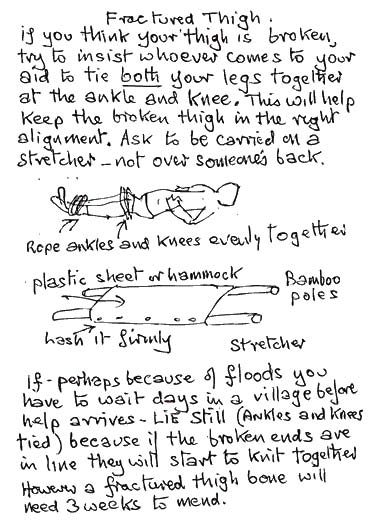 Fractured Thigh.
if you think your thigh is broken,
try to insist whoever comes to your
aid to tie both your legs together
at the ankle and knee. This will help
keep the broken thigh in the right
alignment. Ask to be carried on a
stretcher - not over someone's back.
Rope ankles and knees evenly together
plastic sheet or hammock
Bamboo
poles
lash it firmly
stretcher
If - perhaps because of floods you
have to wait days in a village before
help arrives - LIE still (Ankles and knees
tied) because if the broken ends are
in line they will start to knit together
However a fractured thigh bone will
need 3 weeks to mend.